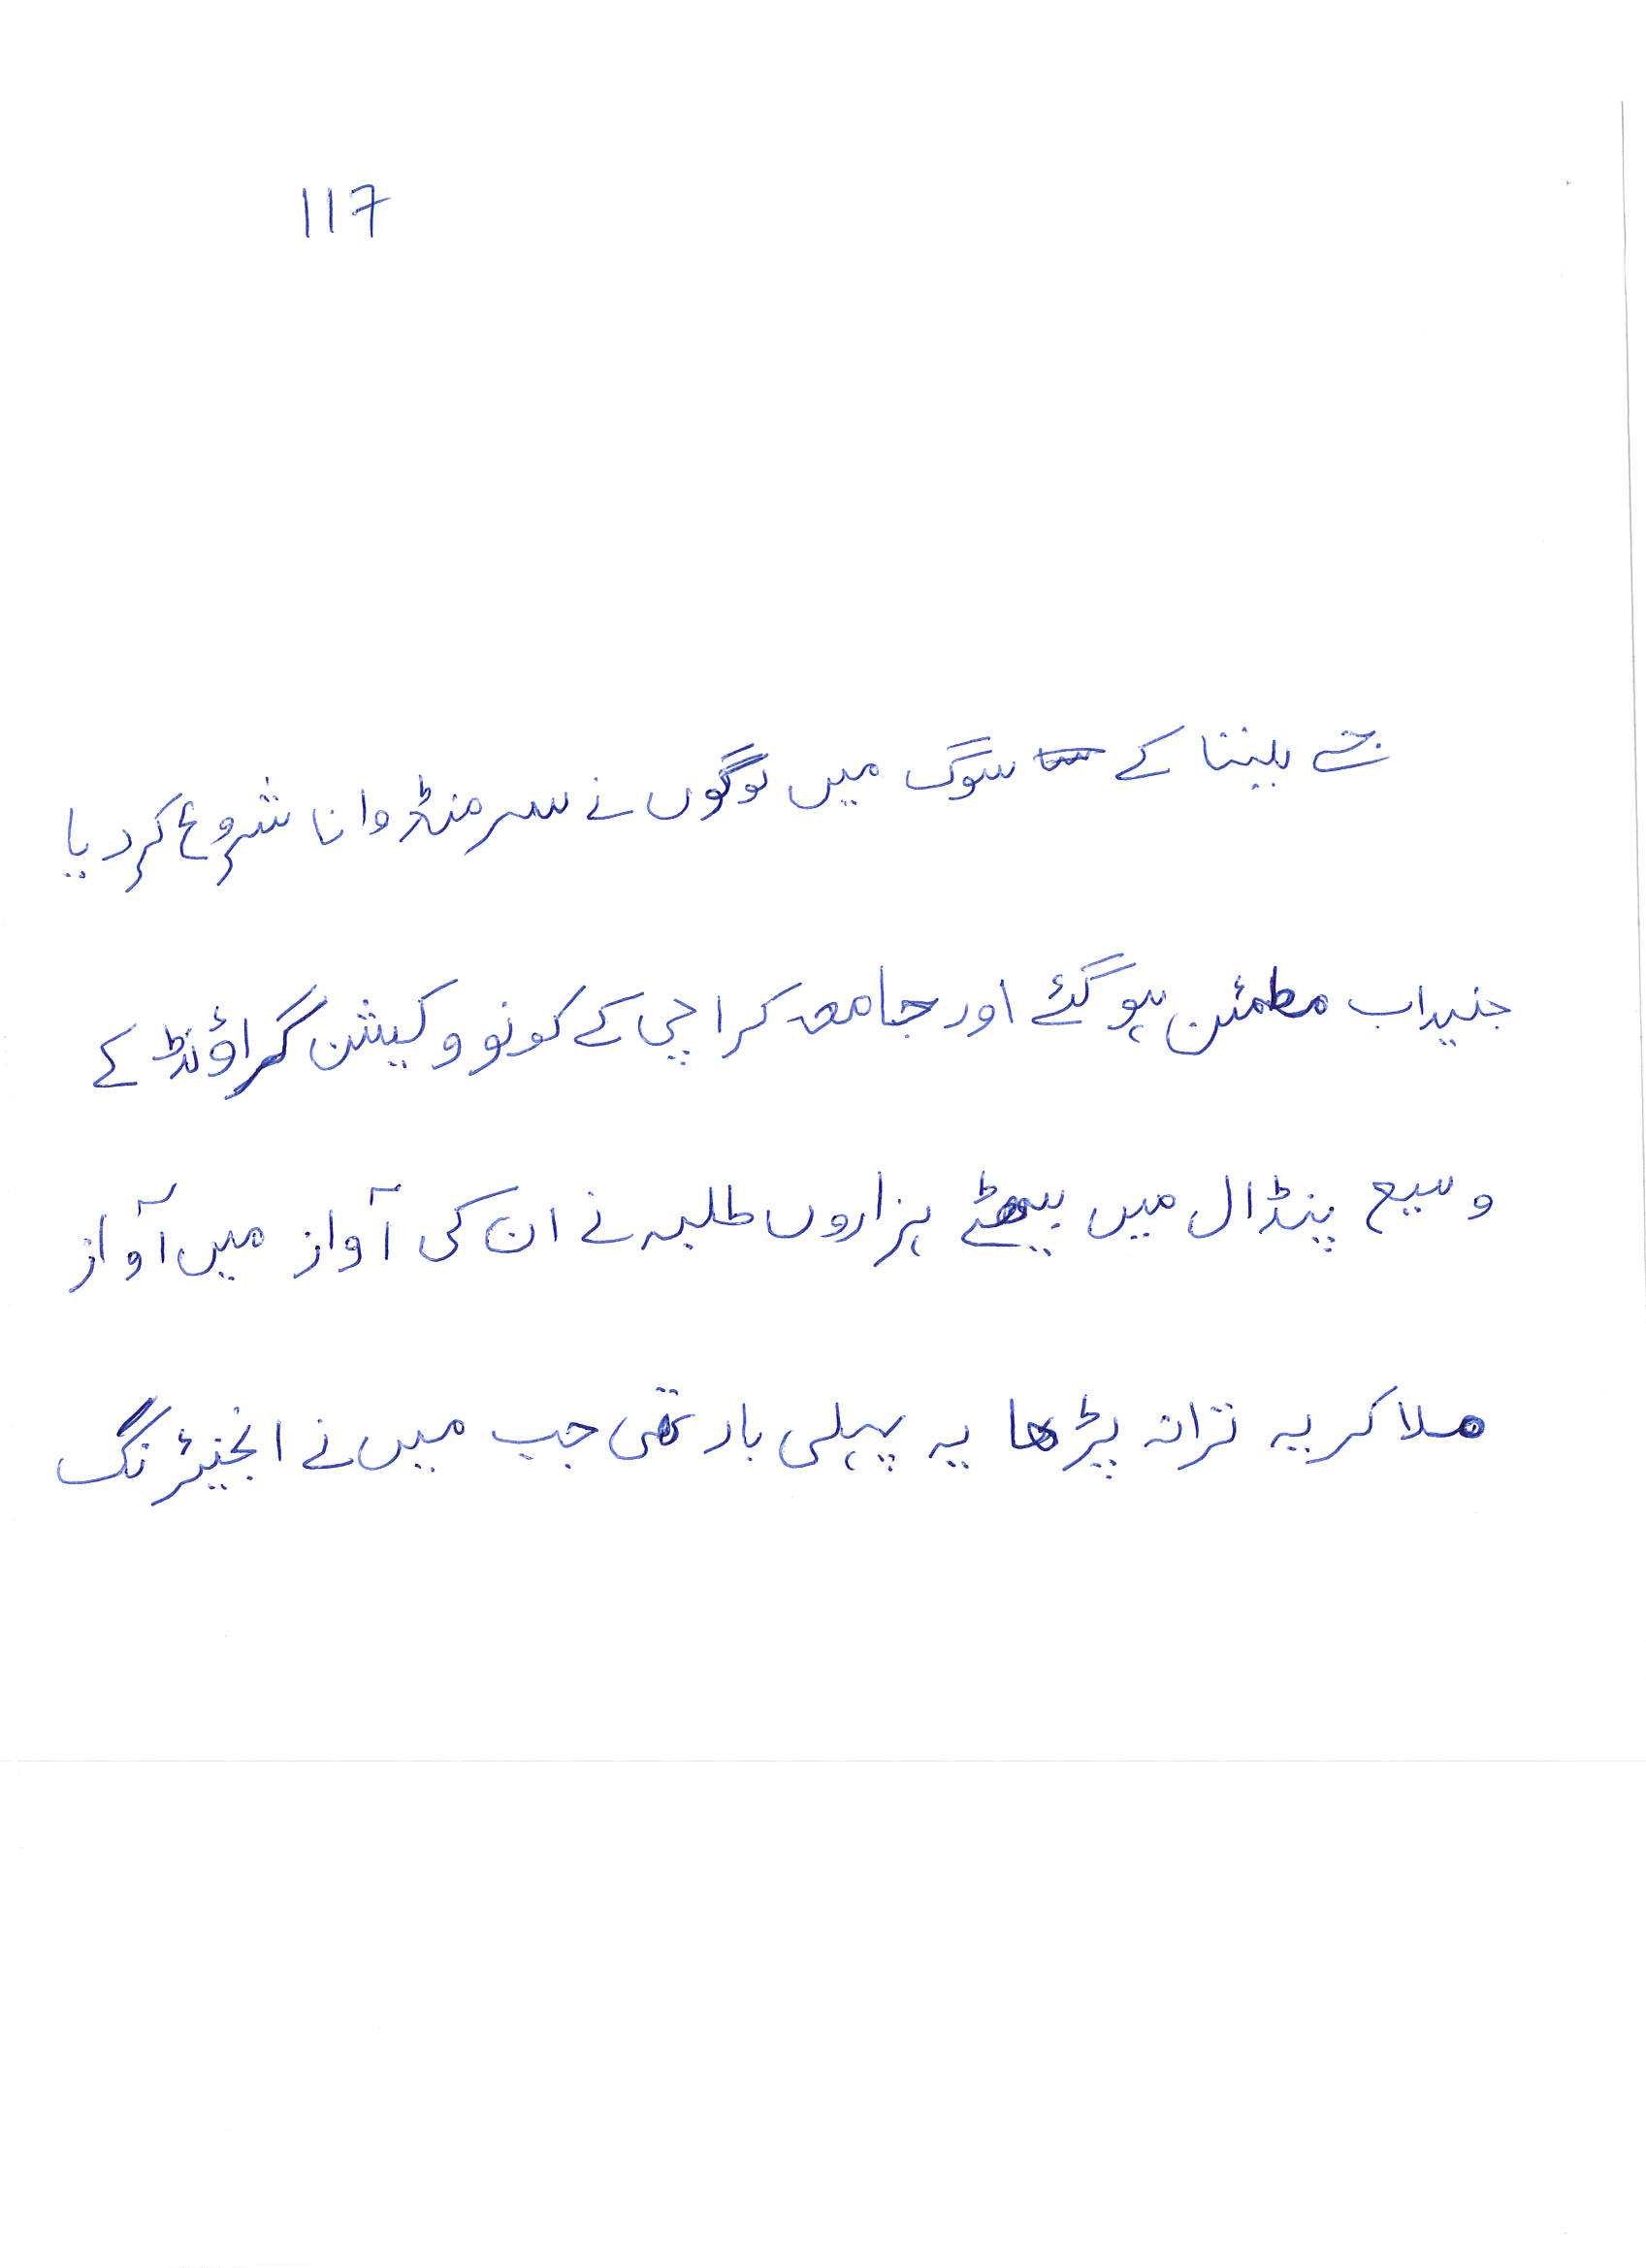 117
جے بینتا کے سوگ میں لوگوں نے سر منڈوانا شروع کر دیا
جنید اب مطمئن ہو گئے اور جامعہ کراچی کے کونووکیشن گراؤنڈ کے
وسیع پنڈال میں بیھٹے ہزاروں طلبہ نے ان کی آواز میں آواز
ملا کر یہ ترانہ پڑھا یہ پہلی بار تھی جب میں نے انجنیئرنگ